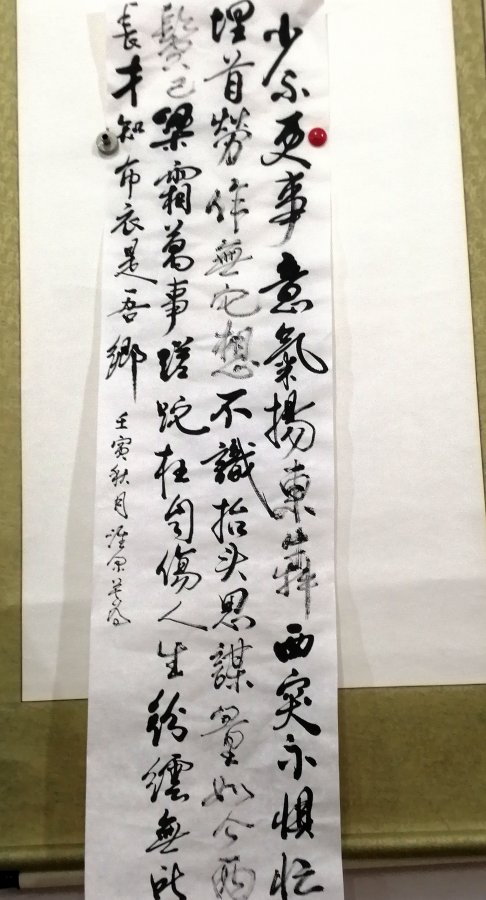 少不更事意氣揚東奔西突不懼忙
埋首勞作無它想不識抬头思謀量如今兩
鬢已染霜萬事蹉跎枉自傷人生紛繧無所
長才知布衣是吾鄉 壬寅秋月